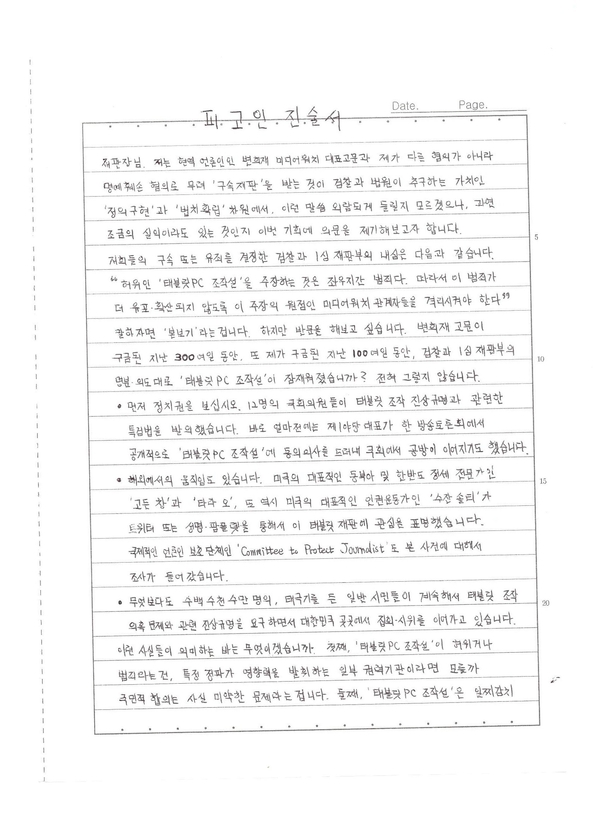 Date. Page.
피고인 진술서
재판장님. 저는 현역 언론인인 변희재 미디어워치 대표고문과 제가 다른 혐의가 아니라
명예훼손 혐의로 무려 '구속재판'을 받는 것이 검찰과 법원이 추구하는 가치인
'정의구현'과 '법치확립' 차원에서, 이런 말씀 외람되게 들릴지 모르겠으나, 과연
조금의 실익이라도 있는 것인지 이번 기회에 의문을 제기해보고자 합니다.
5
저희들의 구속 또는 유죄를 결정한 검찰과 1심 재판부의 내심은 다음과 같습니다.
"허위인 '태블릿PC 조작설'을 주장하는 것은 좌우지간 범죄다. 따라서 이 범죄가
더 유포·확산되지 않도록 이 주장의 원점인 미디어워치 관계자들을 격리시켜야 한다"
말하자면 '본보기'라는겁니다. 하지만 반문을 해보고 싶습니다. 변희재 고문이
구금된 지난 300여일 동안, 또 제가 구금된 지난 100여일 동안, 검찰과 1심 재판부의
10
명분·의도대로 '태블릿PC 조작설'이 잠재워졌습니까? 전혀 그렇지 않습니다.
• 먼저 정치권을 보십시오. 12명의 국회의원들이 태블릿 조작 진상규명과 관련한
특검법을 발의했습니다. 바로 얼마전에는 제1야당 대표가 한 방송토론회에서
공개적으로 '태블릿PC 조작설'에 동의의사를 드러내 국회에서 공방이 이어지기도 했습니다.
• 해외에서의 움직임도 있습니다. 미국의 대표적인 동북아 및 한반도 정세 전문가인
15
'고든 창'과 '타라 오', 또 역시 미국의 대표적인 인권운동가인 '수잔 숄티'가
트위터 또는 성명·팜플렛을 통해서 이 태블릿 재판에 관심을 표명했습니다.
국제적인 언론인 보호단체인 'Committee to Protect Journalist'도 본 사건에 대해서
조사가 들어갔습니다.
• 무엇보다도 수백 수천 수만 명의, 태극기를 든 일반 시민들이 계속해서 태블릿 조작
20
의혹 문제와 관련 진상규명을 요구하면서 대한민국 곳곳에서 집회·시위를 이어가고 있습니다.
이런 사실들이 의미하는 바는 무엇이겠습니까. 첫째, '태블릿PC 조작설'이 허위거나
범죄라는건, 특정 정파가 영향력을 발휘하는 일부 권력기관이라면 모를까
국민적 합의는 사실 미약한 문제라는겁니다. 둘째, '태블릿PC 조작설'은 일찌감치